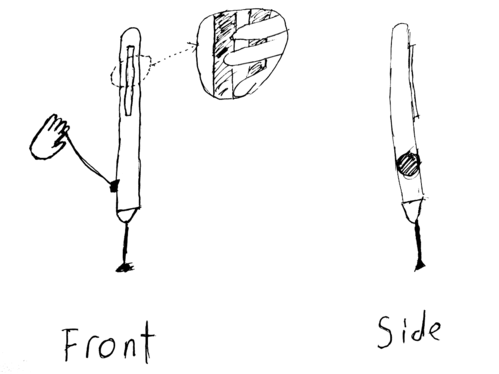 Front
Side